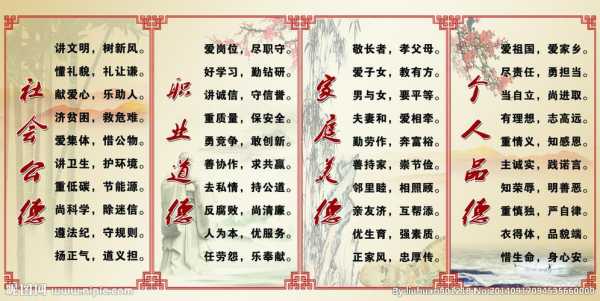 社会公德
讲文明，树新风。
懂礼貌，礼让谦。
献爱心，乐助人。
济贫困，救危难。
爱集体，惜公物。
讲卫生，护环境。
重低碳，节能源。
尚科学，除迷信。
遵法纪，守规则。
扬正气，道义担。
职业道德
爱岗位，尽职守。
好学习，勤钻研。
讲诚信，守信誉。
重质量，保安全。
勇竞争，敢创新。
善协作，求共赢。
去私情，持公道。
反腐败，尚清廉。
人为本，优服务。
任劳怨，乐奉献。
家庭美德
敬长者，孝父母。
爱子女，教有方。
男与女，要平等。
夫妻和，爱相牵。
勤劳作，奔富裕。
善持家，崇节俭。
邻里睦，相照顾。
亲友济，互帮添。
优生育，强素质。
正家风，忠厚传。
个人品德
爱祖国，爱家乡。
尽责任，勇担当。
当自立，尚进取。
有理想，志高远。
重情义，知感恩。
主诚实，践诺言。
知荣辱，明善恶。
重慎独，严自律。
衣得体，品貌端。
惜生命，身心安。
昵图网 www.nipic.com